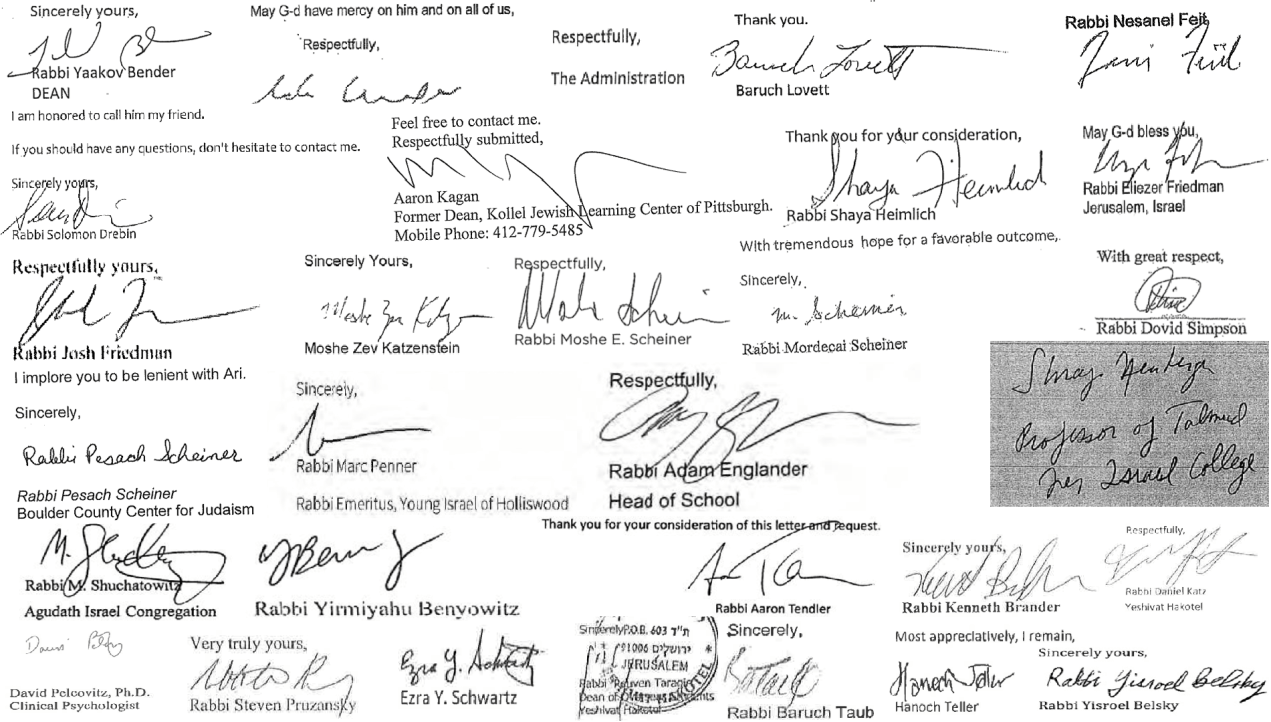 Sincerely yours,
Rabbi Yaakov Bender
DEAN
May G-d have mercy on him and on all of us,
Respectfully,
Respectfully,
The Administration
Thank you.
Baruch Lovett
Baruch Lovett
Rabbi Nesanel Feit
I am honored to call him my friend.
If you should have any questions, don't hesitate to contact me.
Sincerely yours,
Rabbi Solomon Drebin
Feel free to contact me.
Respectfully submitted,
Aaron Kagan
Former Dean, Kollel Jewish Learning Center of Pittsburgh.
Mobile Phone: 412-779-5485
Thank you for your consideration,
Shaya Heimlich
Rabbi Shaya Heimlich
May G-d bless you,
Rabbi Eliezer Friedman
Jerusalem, Israel
Respectfully yours,
Rabbi Josh Friedman
Sincerely Yours,
Moshe Zev Katzenstein
Respectfully,
Moshe Schein
Rabbi Moshe E. Scheiner
With tremendous hope for a favorable outcome,
Sincerely,
M. Scheiner
Rabbi Mordecai Scheiner
With great respect,
Rabbi Dovid Simpson
I implore you to be lenient with Ari.
Sincerely,
Rabbi Pesach Scheiner
Rabbi Pesach Scheiner
Boulder County Center for Judaism
Sincerely,
Rabbi Marc Penner
Rabbi Emeritus, Young Israel of Holliswood
Respectfully,
Rabbi Adam Englander
Head of School
Professor of Talmud
Ner Israel College
Rabbi M. Shuchatowitz
Agudath Israel Congregation
Rabbi Yirmiyahu Benyowitz
Thank you for your consideration of this letter and request.
Rabbi Aaron Tendler
Sincerely yours,
Rabbi Kenneth Brander
Respectfully,
Rabbi Daniel Katz
Yeshivat Hakotel
David Pelcovitz, Ph.D.
Clinical Psychologist
Very truly yours,
Rabbi Steven Pruzansky
Ezra Y. Schwartz
Ezra Y. Schwartz
Sincerely P.O.B. 603 ת"ד
91006 ירושלים
JERUSALEM
Rabbi Reuven Taragin
Dean of
Yeshivat Hakotel
Sincerely,
Rabbi Baruch Taub
Most appreciatively, I remain,
Hanoch Teller
Hanoch Teller
Sincerely yours,
Rabbi Yisroel Belsky
Rabbi Yisroel Belsky